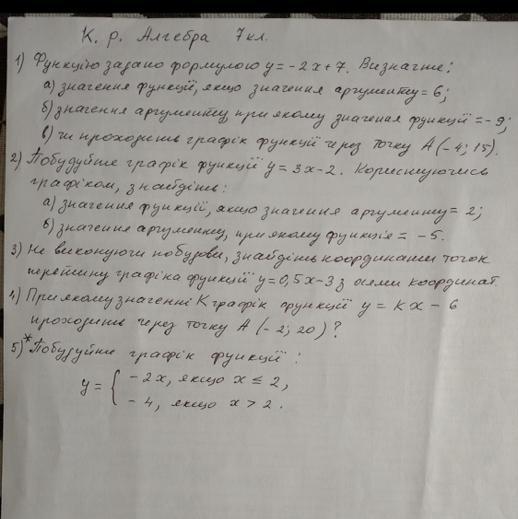 К. р. Алгебра 7 кл.
1) Функцію задано формулою y = -2x+7. Визначте:
а) значення функції, якщо значення аргументу = 6;
б) значення аргументу, при якому значення функції = -9;
в) чи проходить графік функції через точку A (-4; 15).
2) Побудуйте графік функції y = 3x-2. Користуючись
графіком, знайдіть:
а) значення функції, якщо значення аргументу = 2;
б) значення аргументу, при якому функція = -5.
3) Не виконуючи побудови, знайдіть координати точок
перетину графіка функції y = 0,5x-3 з осями координат.
4) При якому значенні K графік функції y = Kx - 6
проходить через точку A (-2; 20)?
5)* Побудуйте графік функції:
y = { -2x, якщо x ≤ 2,
-4, якщо x > 2.